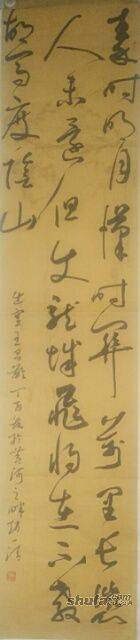 秦时明月汉时关万里长征
人未还但使龙城飞将在不教
胡马度阴山
出塞王昌龄丁百友於黄河之畔